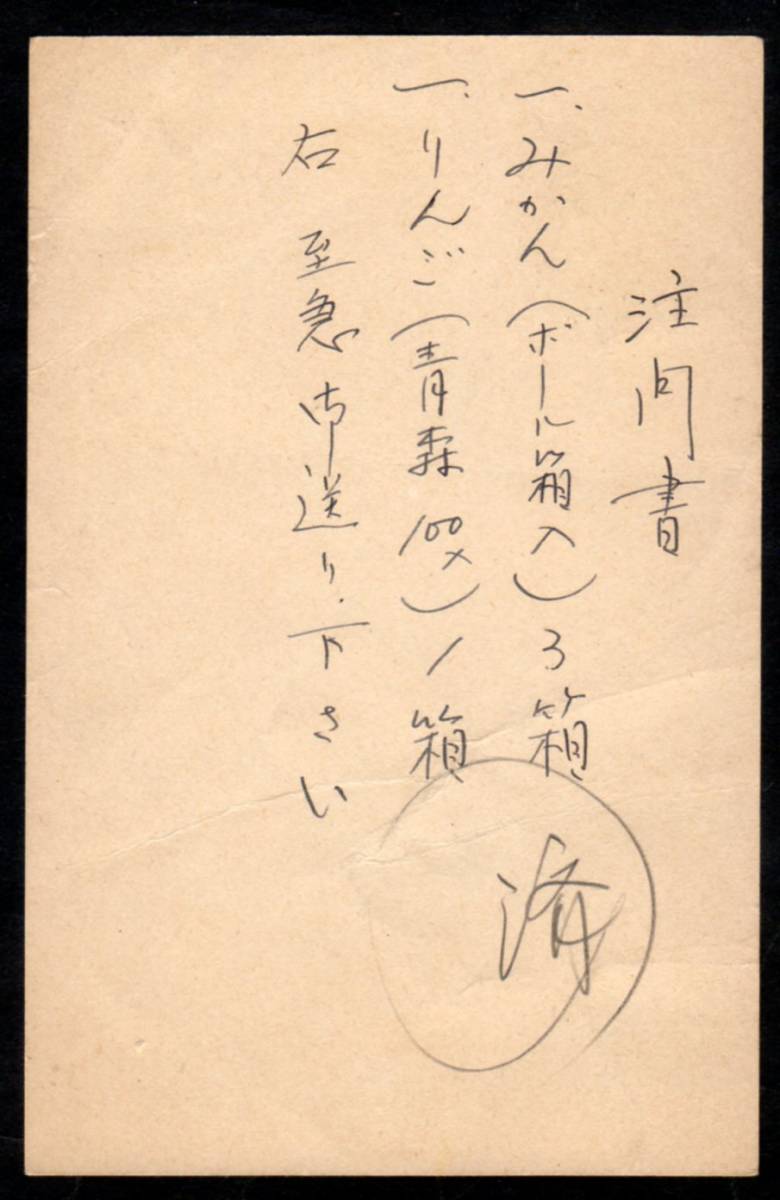 注问書
一、みかん（ボール箱入）3箱
一、りんご（青森100メ）1箱
右 至急御送り下さい
済